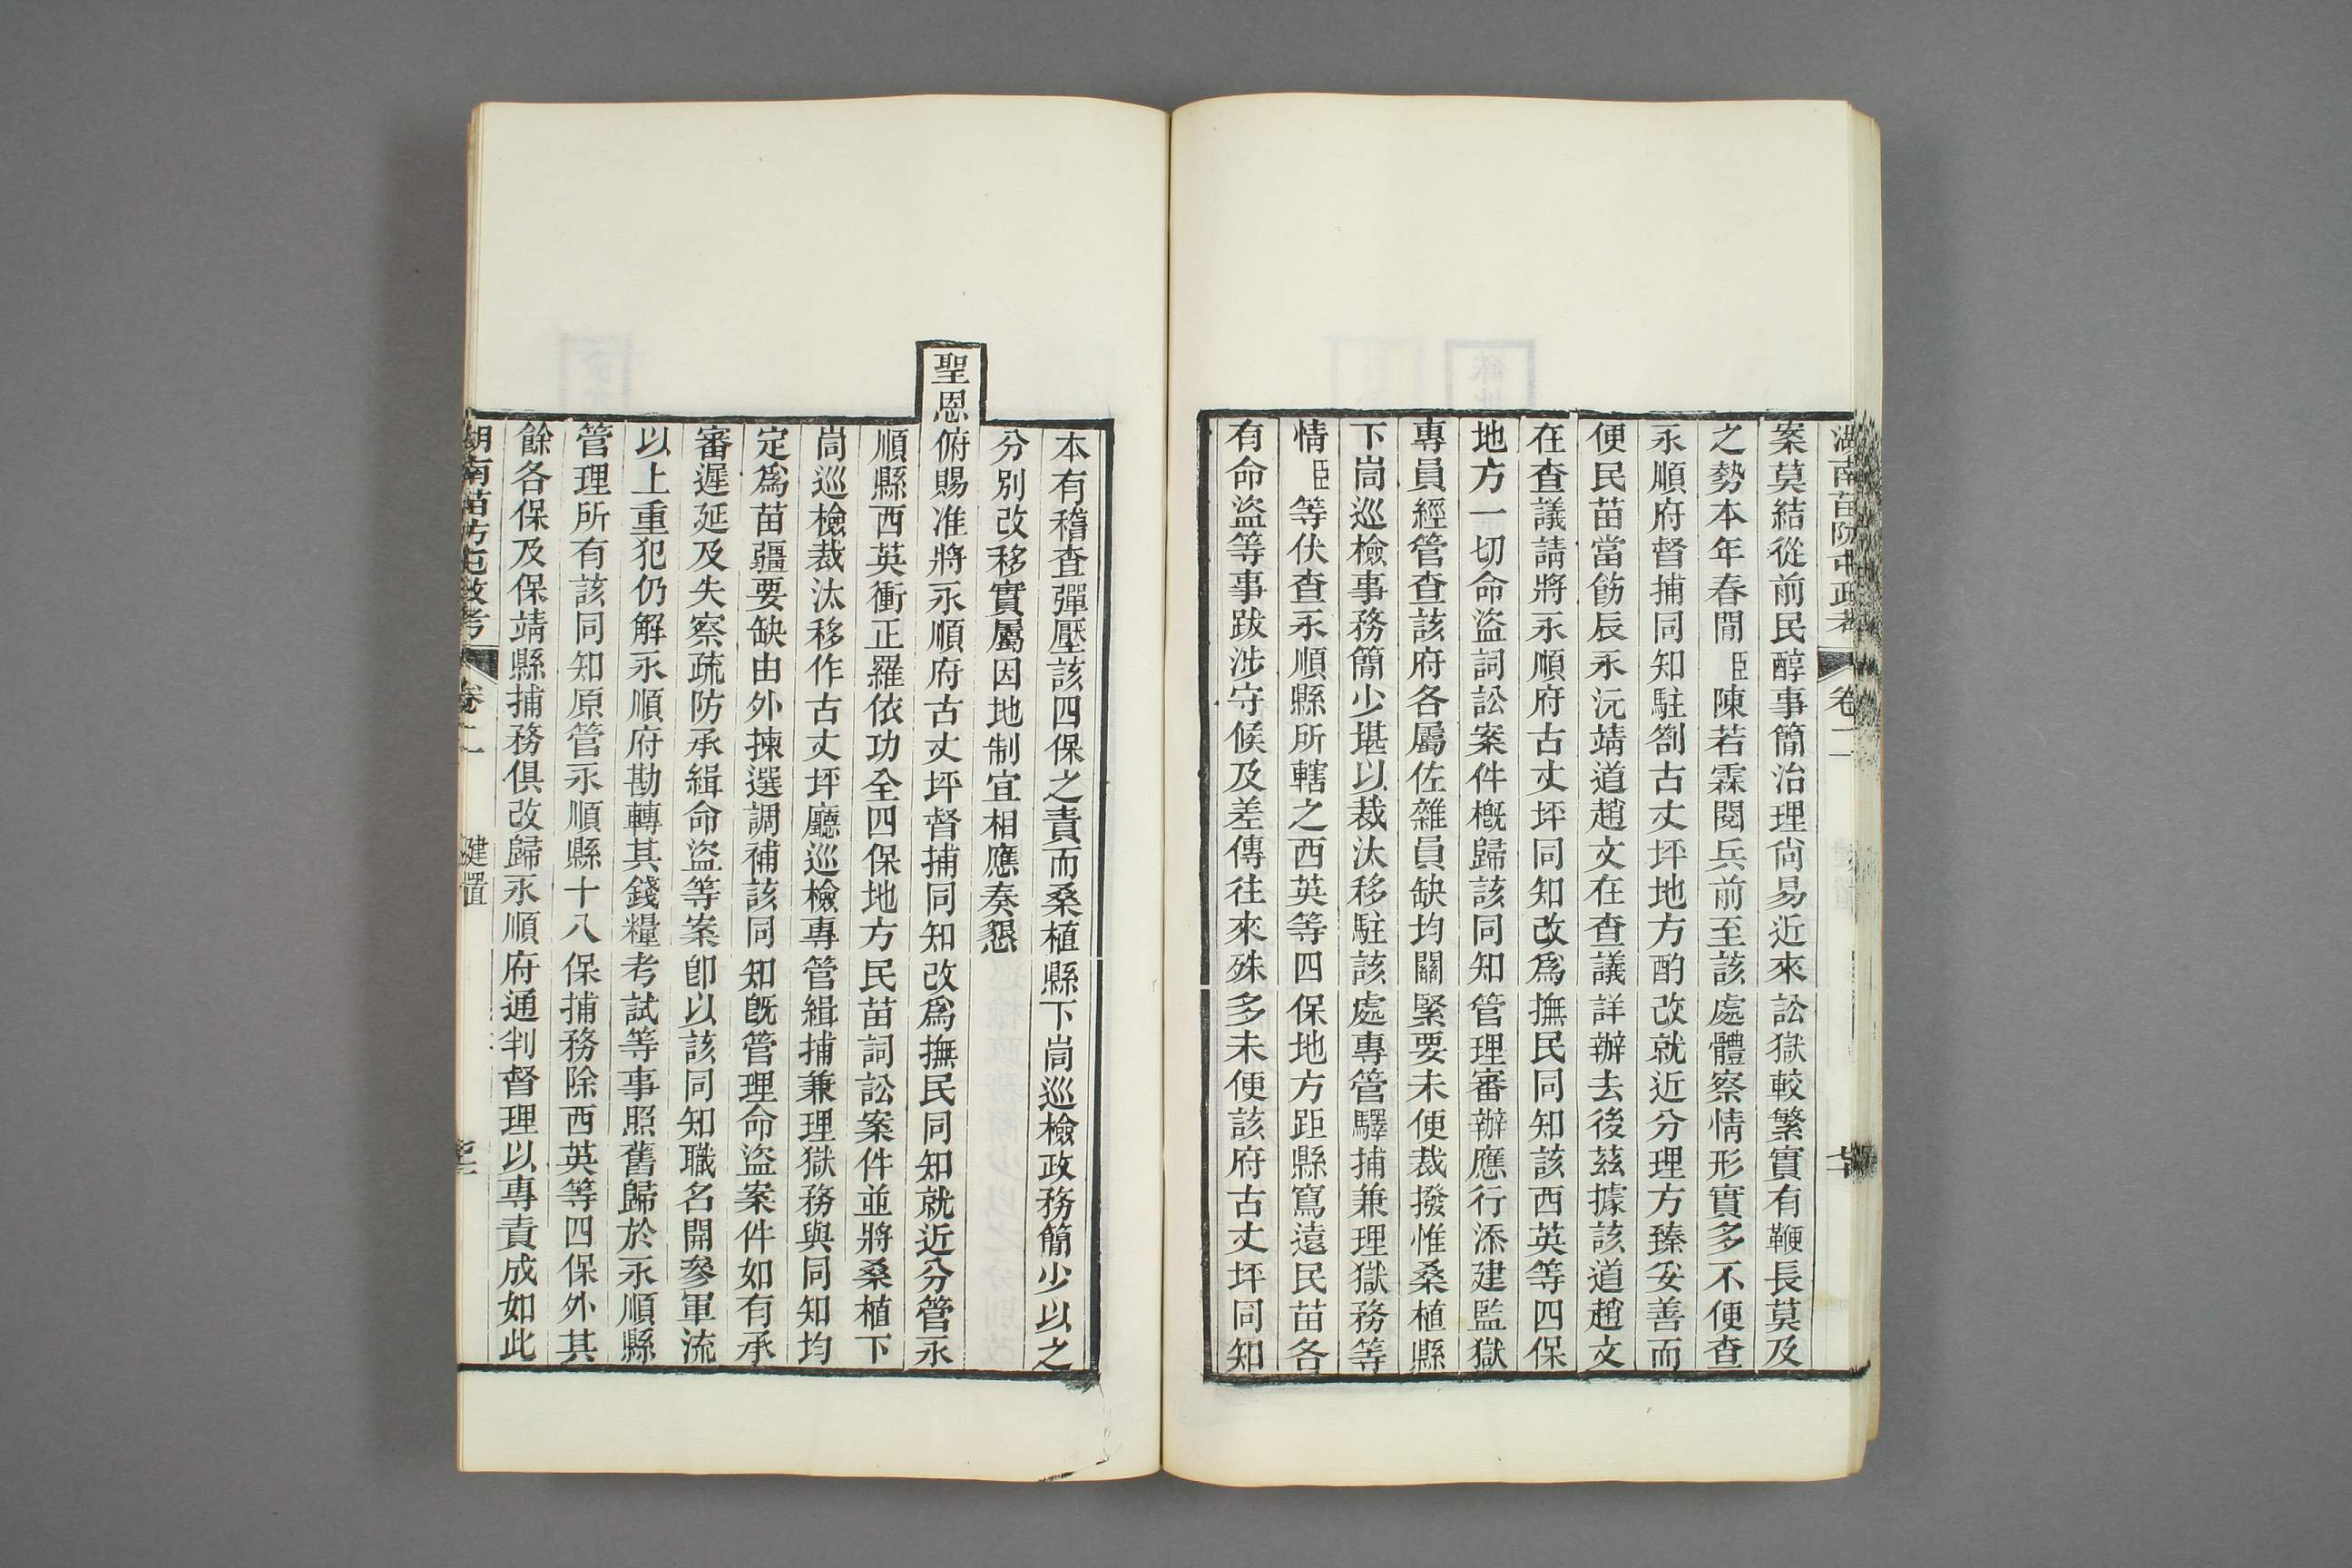 湖南苗防屯政考 卷二
案莫結從前民醇事簡治理尙易近來訟獄較繁實有鞭長莫及
之勢本年春間臣陳若霖閱兵前至該處體察情形實多不便查
永順府督捕同知駐劄古丈坪地方酌改就近分理方臻妥善而
便民苗當飭辰永沅靖道趙文在查議詳辦去後茲據該道趙文
在查議請將永順府古丈坪同知改爲撫民同知該西英等四保
地方一切命盜詞訟案件槪歸該同知管理審辦應行添建監獄
專員經管查該府各屬佐雜員缺均關緊要未便裁撥惟桑植縣
下峝巡檢事務簡少堪以裁汰移駐該處專管驛捕兼理獄務等
情臣等伏查永順縣所轄之西英等四保地方距縣窵遠民苗各
有命盜等事跋涉守候及差傳往來殊多未便該府古丈坪同知
本有稽查彈壓該四保之責而桑植縣下峝巡檢政務簡少以之
分別改移實屬因地制宜相應奏懇
聖恩俯賜准將永順府古丈坪督捕同知改爲撫民同知就近分管永
順縣西英衝正羅依功全四保地方民苗詞訟案件並將桑植下
峝巡檢裁汰移作古丈坪廳巡檢專管緝捕兼理獄務與同知均
定爲苗疆要缺由外揀選調補該同知旣管理命盜案件如有承
審遲延及失察疏防承緝命盜等案卽以該同知職名開參軍流
以上重犯仍解永順府勘轉其錢糧考試等事照舊歸於永順縣
管理所有該同知原管永順縣十八保捕務除西英等四保外其
餘各保及保靖縣捕務俱改歸永順府通判督理以專責成如此
湖南苗防屯政考 卷二 建置